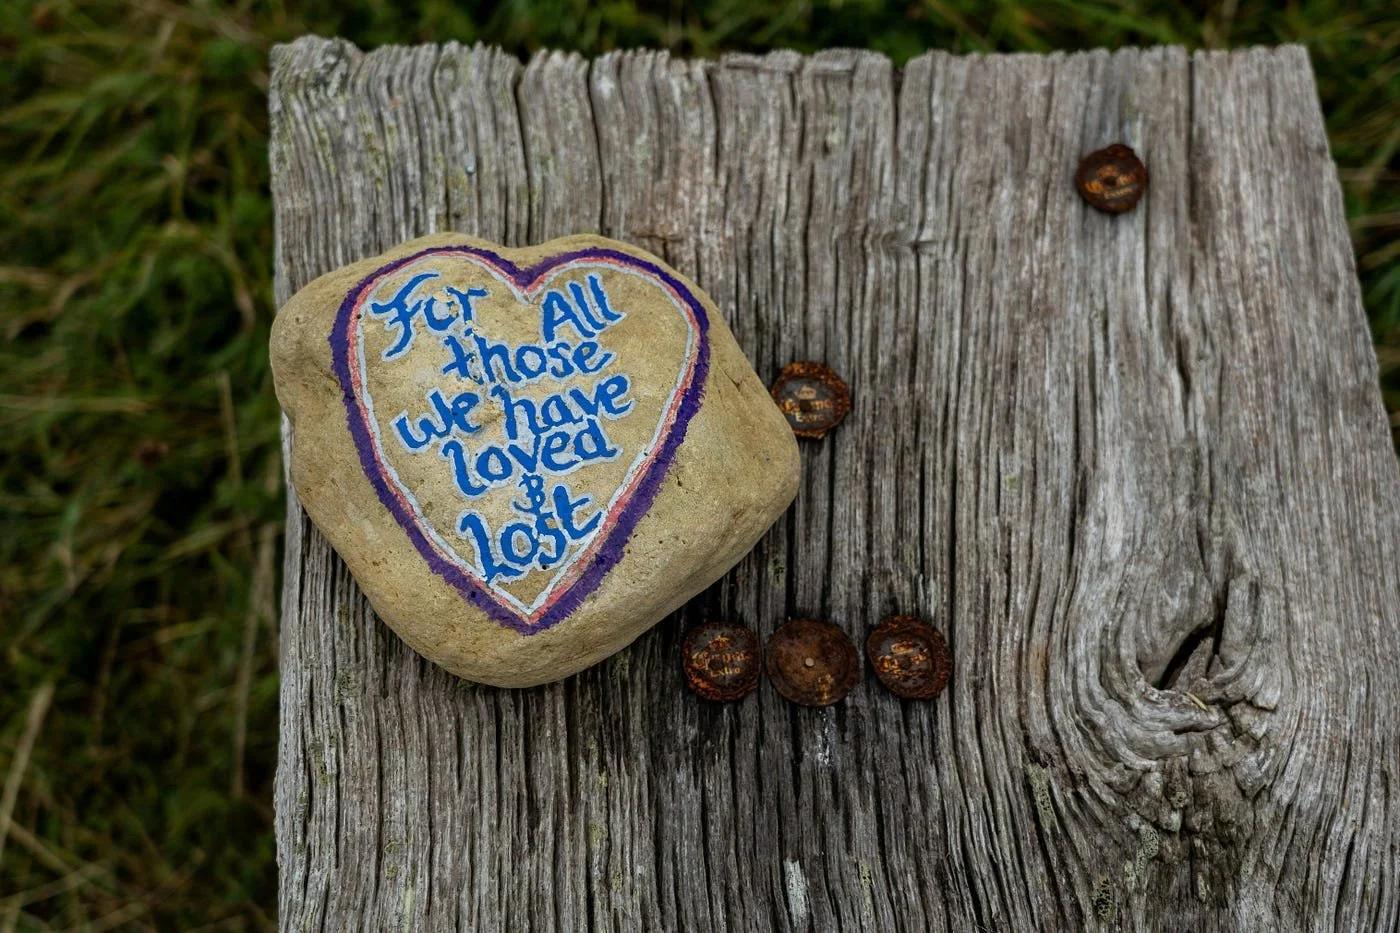 For All
those
we have
loved
&
Lost